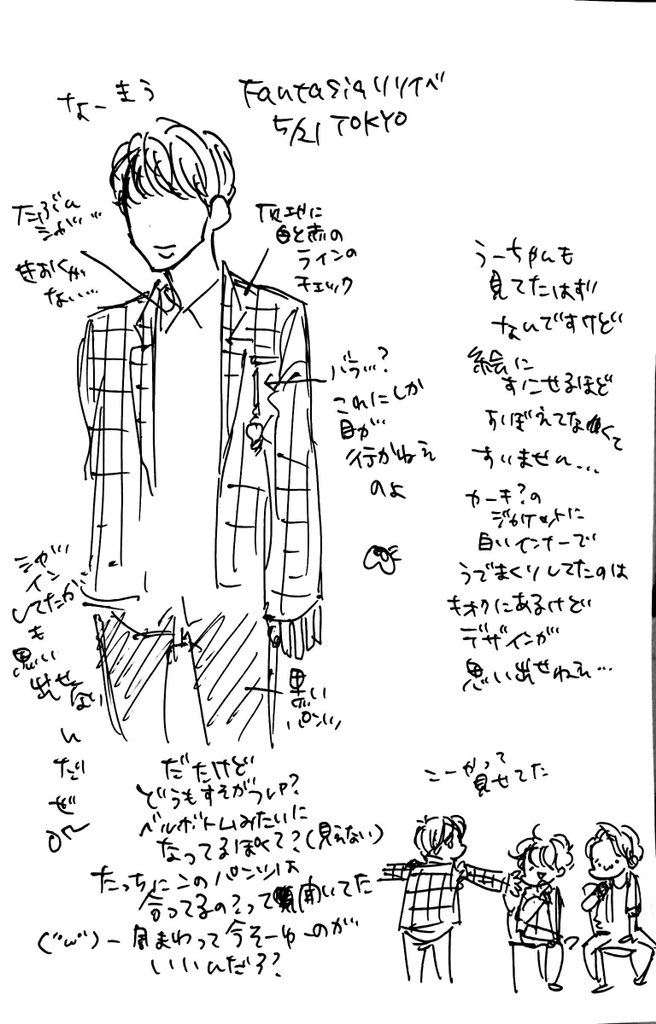 なーまう
Fantasiaリリイベ
5/21 TOKYO
たぶん
シャツ…
きおくが
ない…
下地に
白と赤の
ラインの
チェック
バラ…?
これにしか
目が
行かねえ
のよ
うーちゃんも
見てたはず
なんですけど
絵に
おこせるほど
おぼえてなくて
すいません…
カーキ?の
ジャケットに
白いインナーで
うでまくりしてたのは
キオクにあるけど
デザインが
思い出せねえ…
シャツ
イン
してたか
も
思い
出せ
ない
ん
だ
ぜ
黒い
パンツ
だったけど
どうもすそがつい?
ベルボトムみたいに
なってるぽくて?(見えない)
たっちにこのパンツは
合ってるの?って聞いてた
一周まわって今そーゆーのが
いいんだろ?
こーやって
見せてた